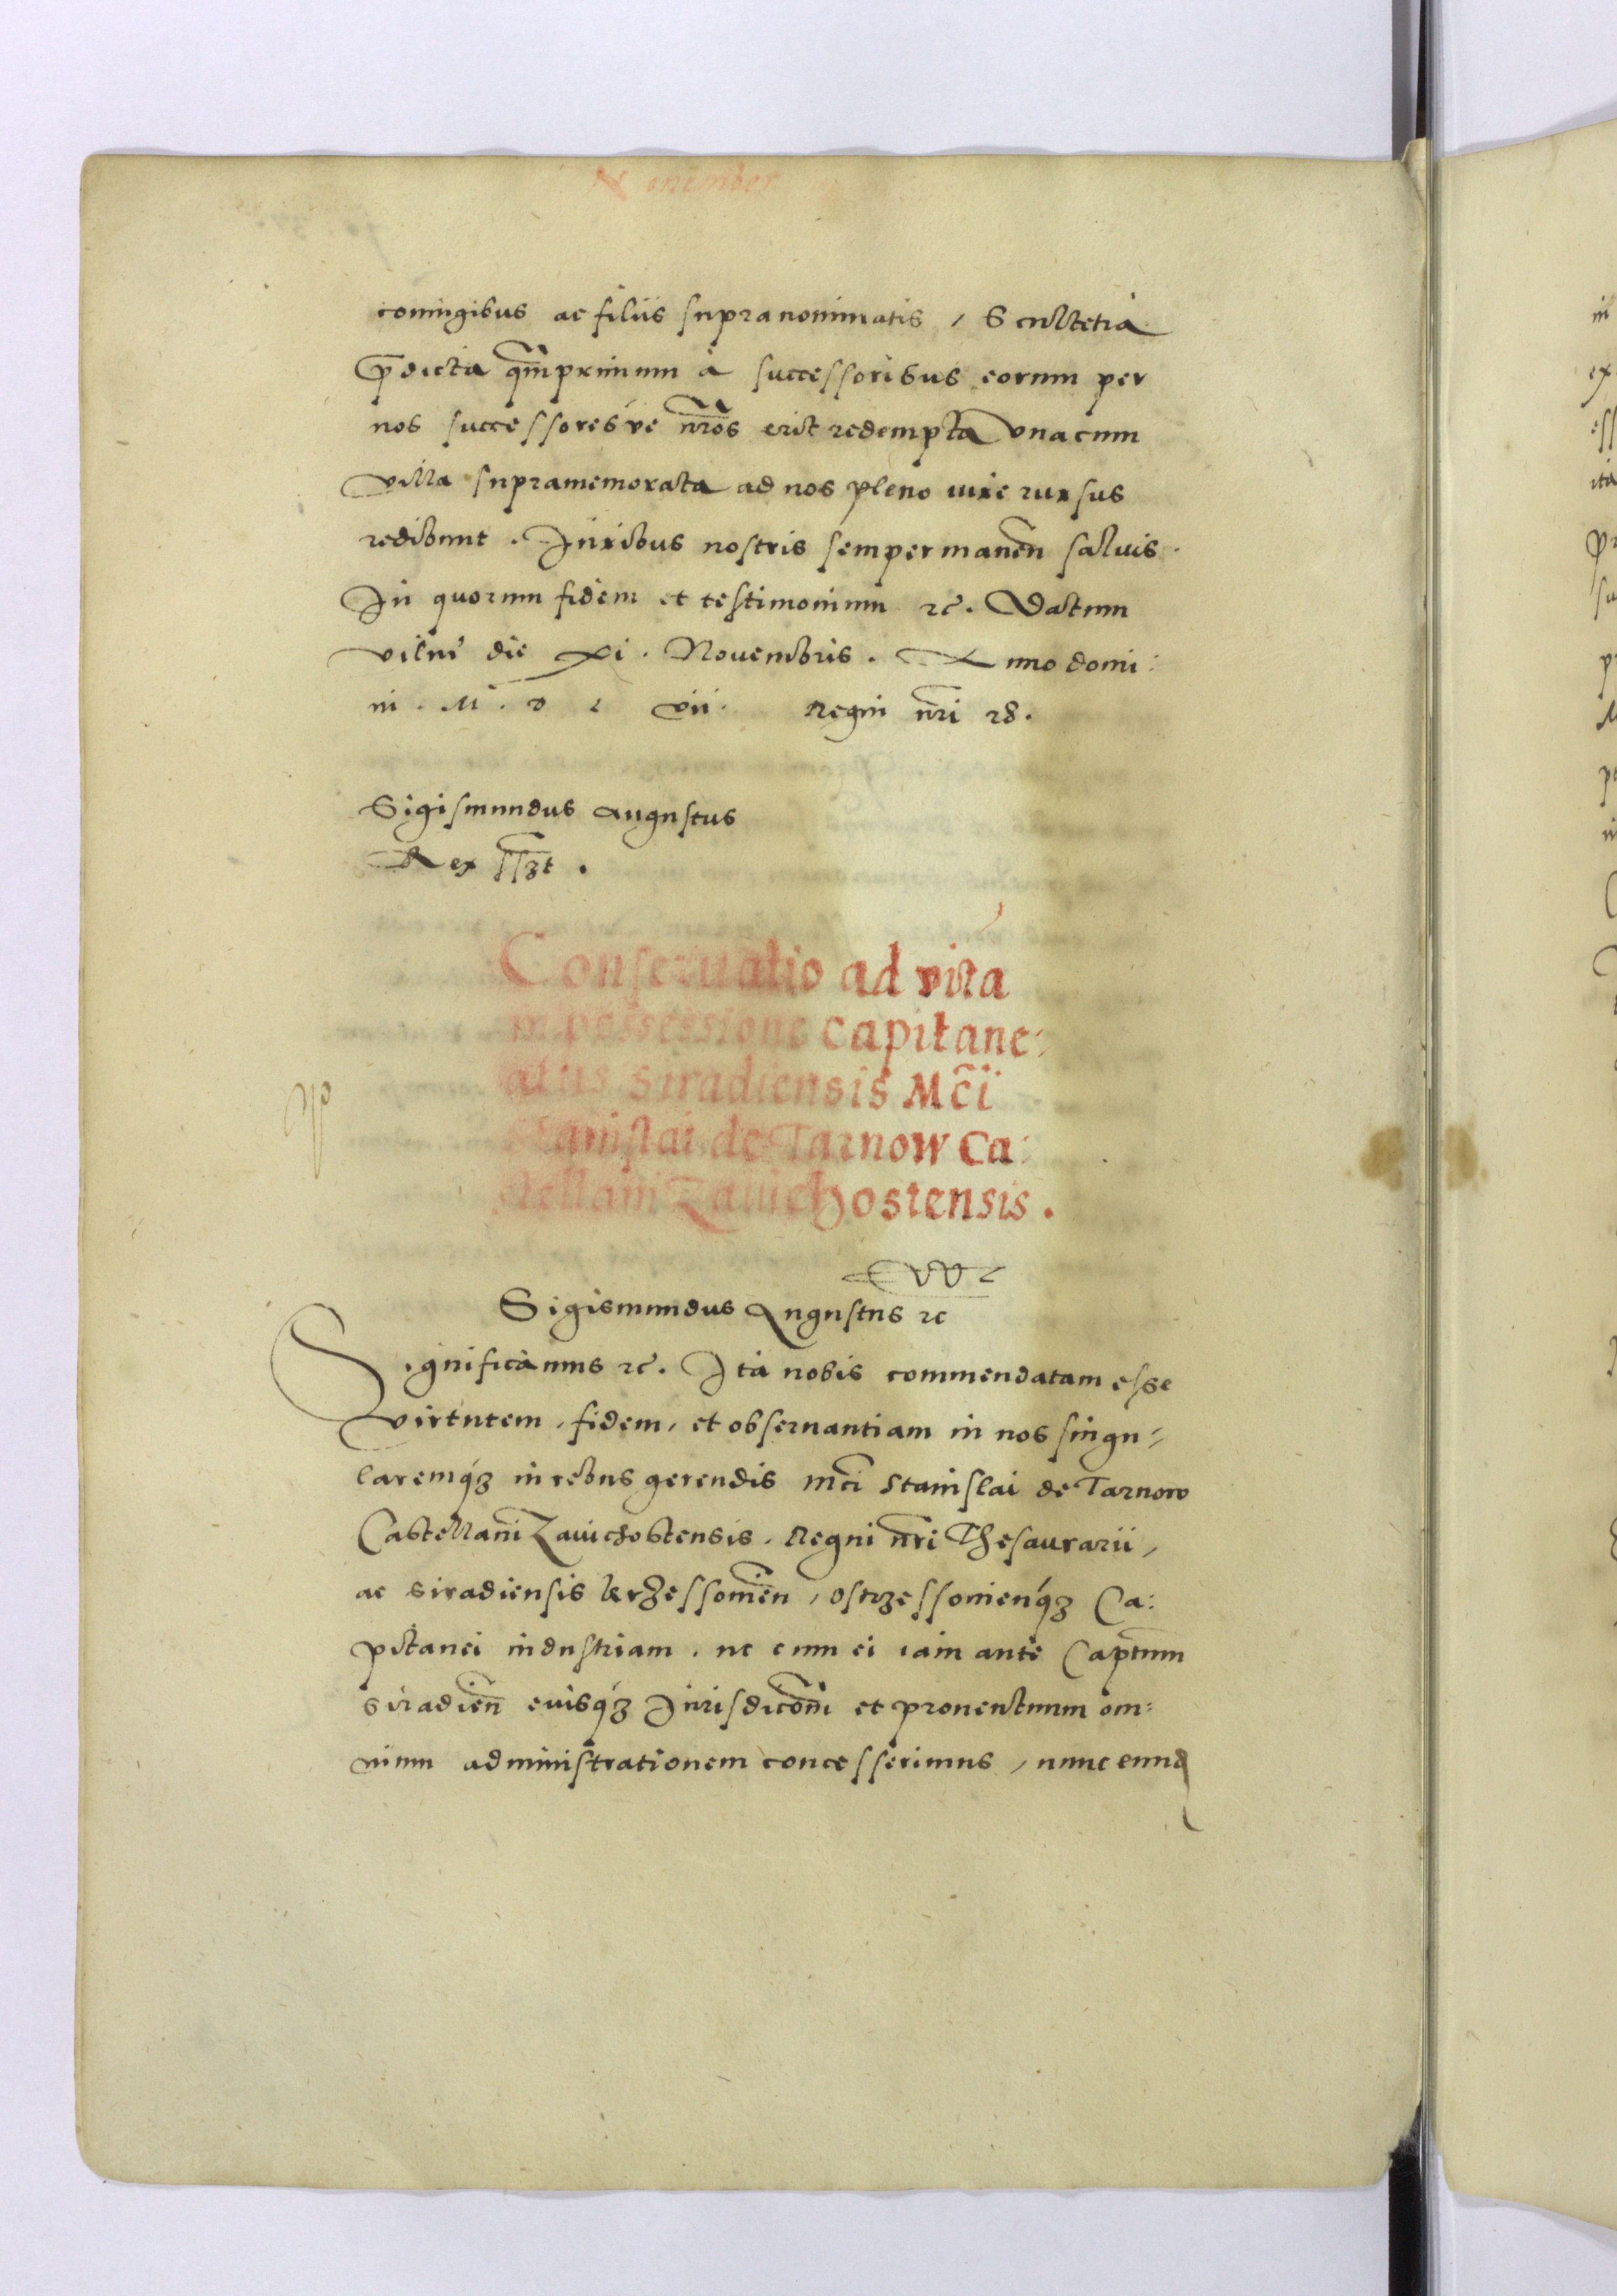 Nouember
coniugibus ac filiis supranominatis, Scultetia
p̄dicta qm̄primum à successoribus eorum per
nos successores've nr̄os erit redempta Vnacum
villa supramemorata ad nos pleno iure rursus
redibunt. Iuribus nostris semper manen̄ saluis.
In quorum fidem et testimonium ꝛc̄. Datum
vilnę die xi. Nouembris. Anno domi:
ni. M. D L vii. Regni nr̄i 28.
Sigismundus Augustus
Rex sszt.
Conseruatio ad vitā
in possessione Capitane:
atus Siradiensis Mc̄i
Stanislai de Tarnow Ca:
stellani Zauichostensis.
Sigismundus Augustus ꝛc
Significamus ꝛc̄. Ita nobis commendatam esse
virtutem, fidem, et obseruantiam in nos singu=
laremq́ꝫ in rebus gerendis Mc̄i Stanislai de Tarnow
Castellani Zauichostensis, Regni nr̄i Thesaurarii,
ac Siradiensis krzessouien̄, Ostrzessouienq́ꝫ Ca:
pitanei industriam, ut cum ei iam ante Capt̄um
Siradien̄ eiusq́ꝫ Iurisdictōni et prouentuum om:
nium administrationem concesserimus, nunc eund